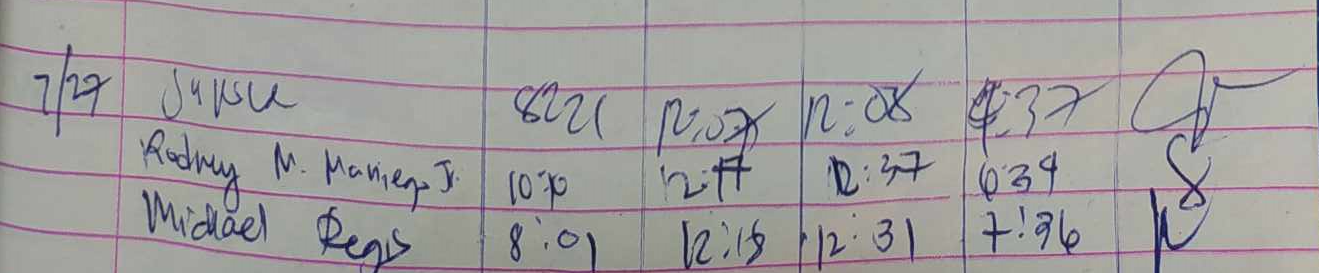 7/27 8:21 12:07 12:08 4:37
Rodney M. Jr. 12:17 12:37 6:34
Michael Regis 8:01 12:18 12:31 7:36